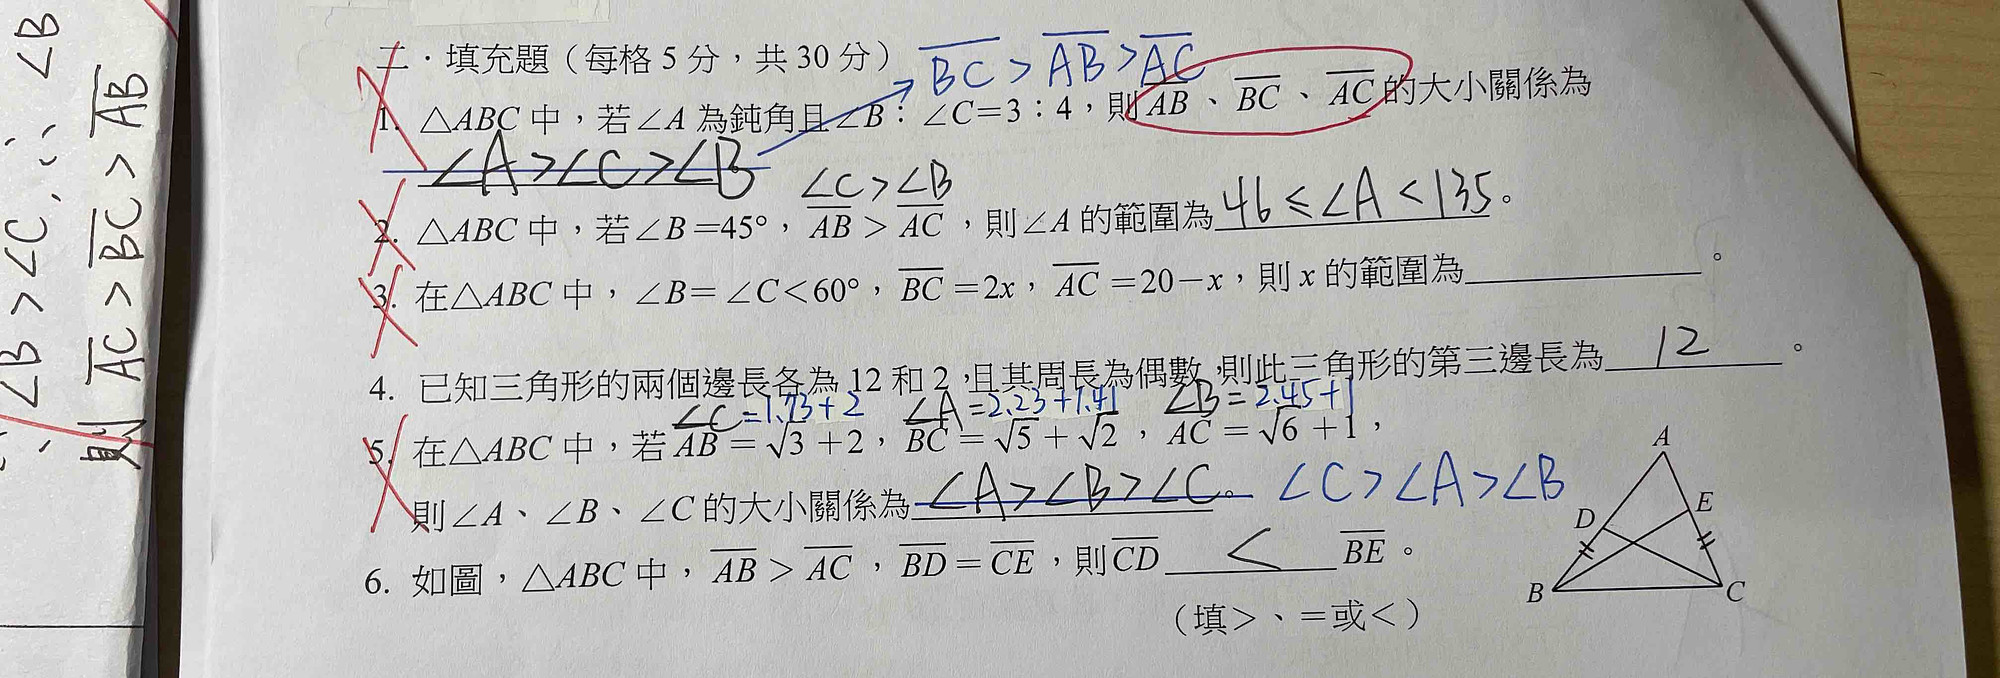 ∠B > ∠C, ∴ ∠B
則 AC > BC > AB
二．填充題（每格 5 分，共 30 分）
BC > AB > AC
1. △ABC 中，若∠A 為鈍角且∠B：∠C=3：4，則 AB、BC、AC 的大小關係為
∠A>∠C>∠B
∠C>∠B
2. △ABC 中，若∠B=45°，AB > AC，則∠A 的範圍為 46≤∠A<135。
3. 在△ABC 中，∠B=∠C<60°，BC=2x，AC=20-x，則 x 的範圍為 。
4. 已知三角形的兩個邊長各為 12 和 2，且其周長為偶數，則此三角形的第三邊長為 12 。
∠C=1.73+2 ∠A=2.23+1.41 ∠B=2.45+1
5. 在△ABC 中，若 AB=√3+2，BC=√5+√2，AC=√6+1，
則∠A、∠B、∠C 的大小關係為 ∠A>∠B>∠C。 ∠C>∠A>∠B
6. 如圖，△ABC 中，AB > AC，BD=CE，則 CD < BE。
（填>、=或<）
A
D
E
B
C